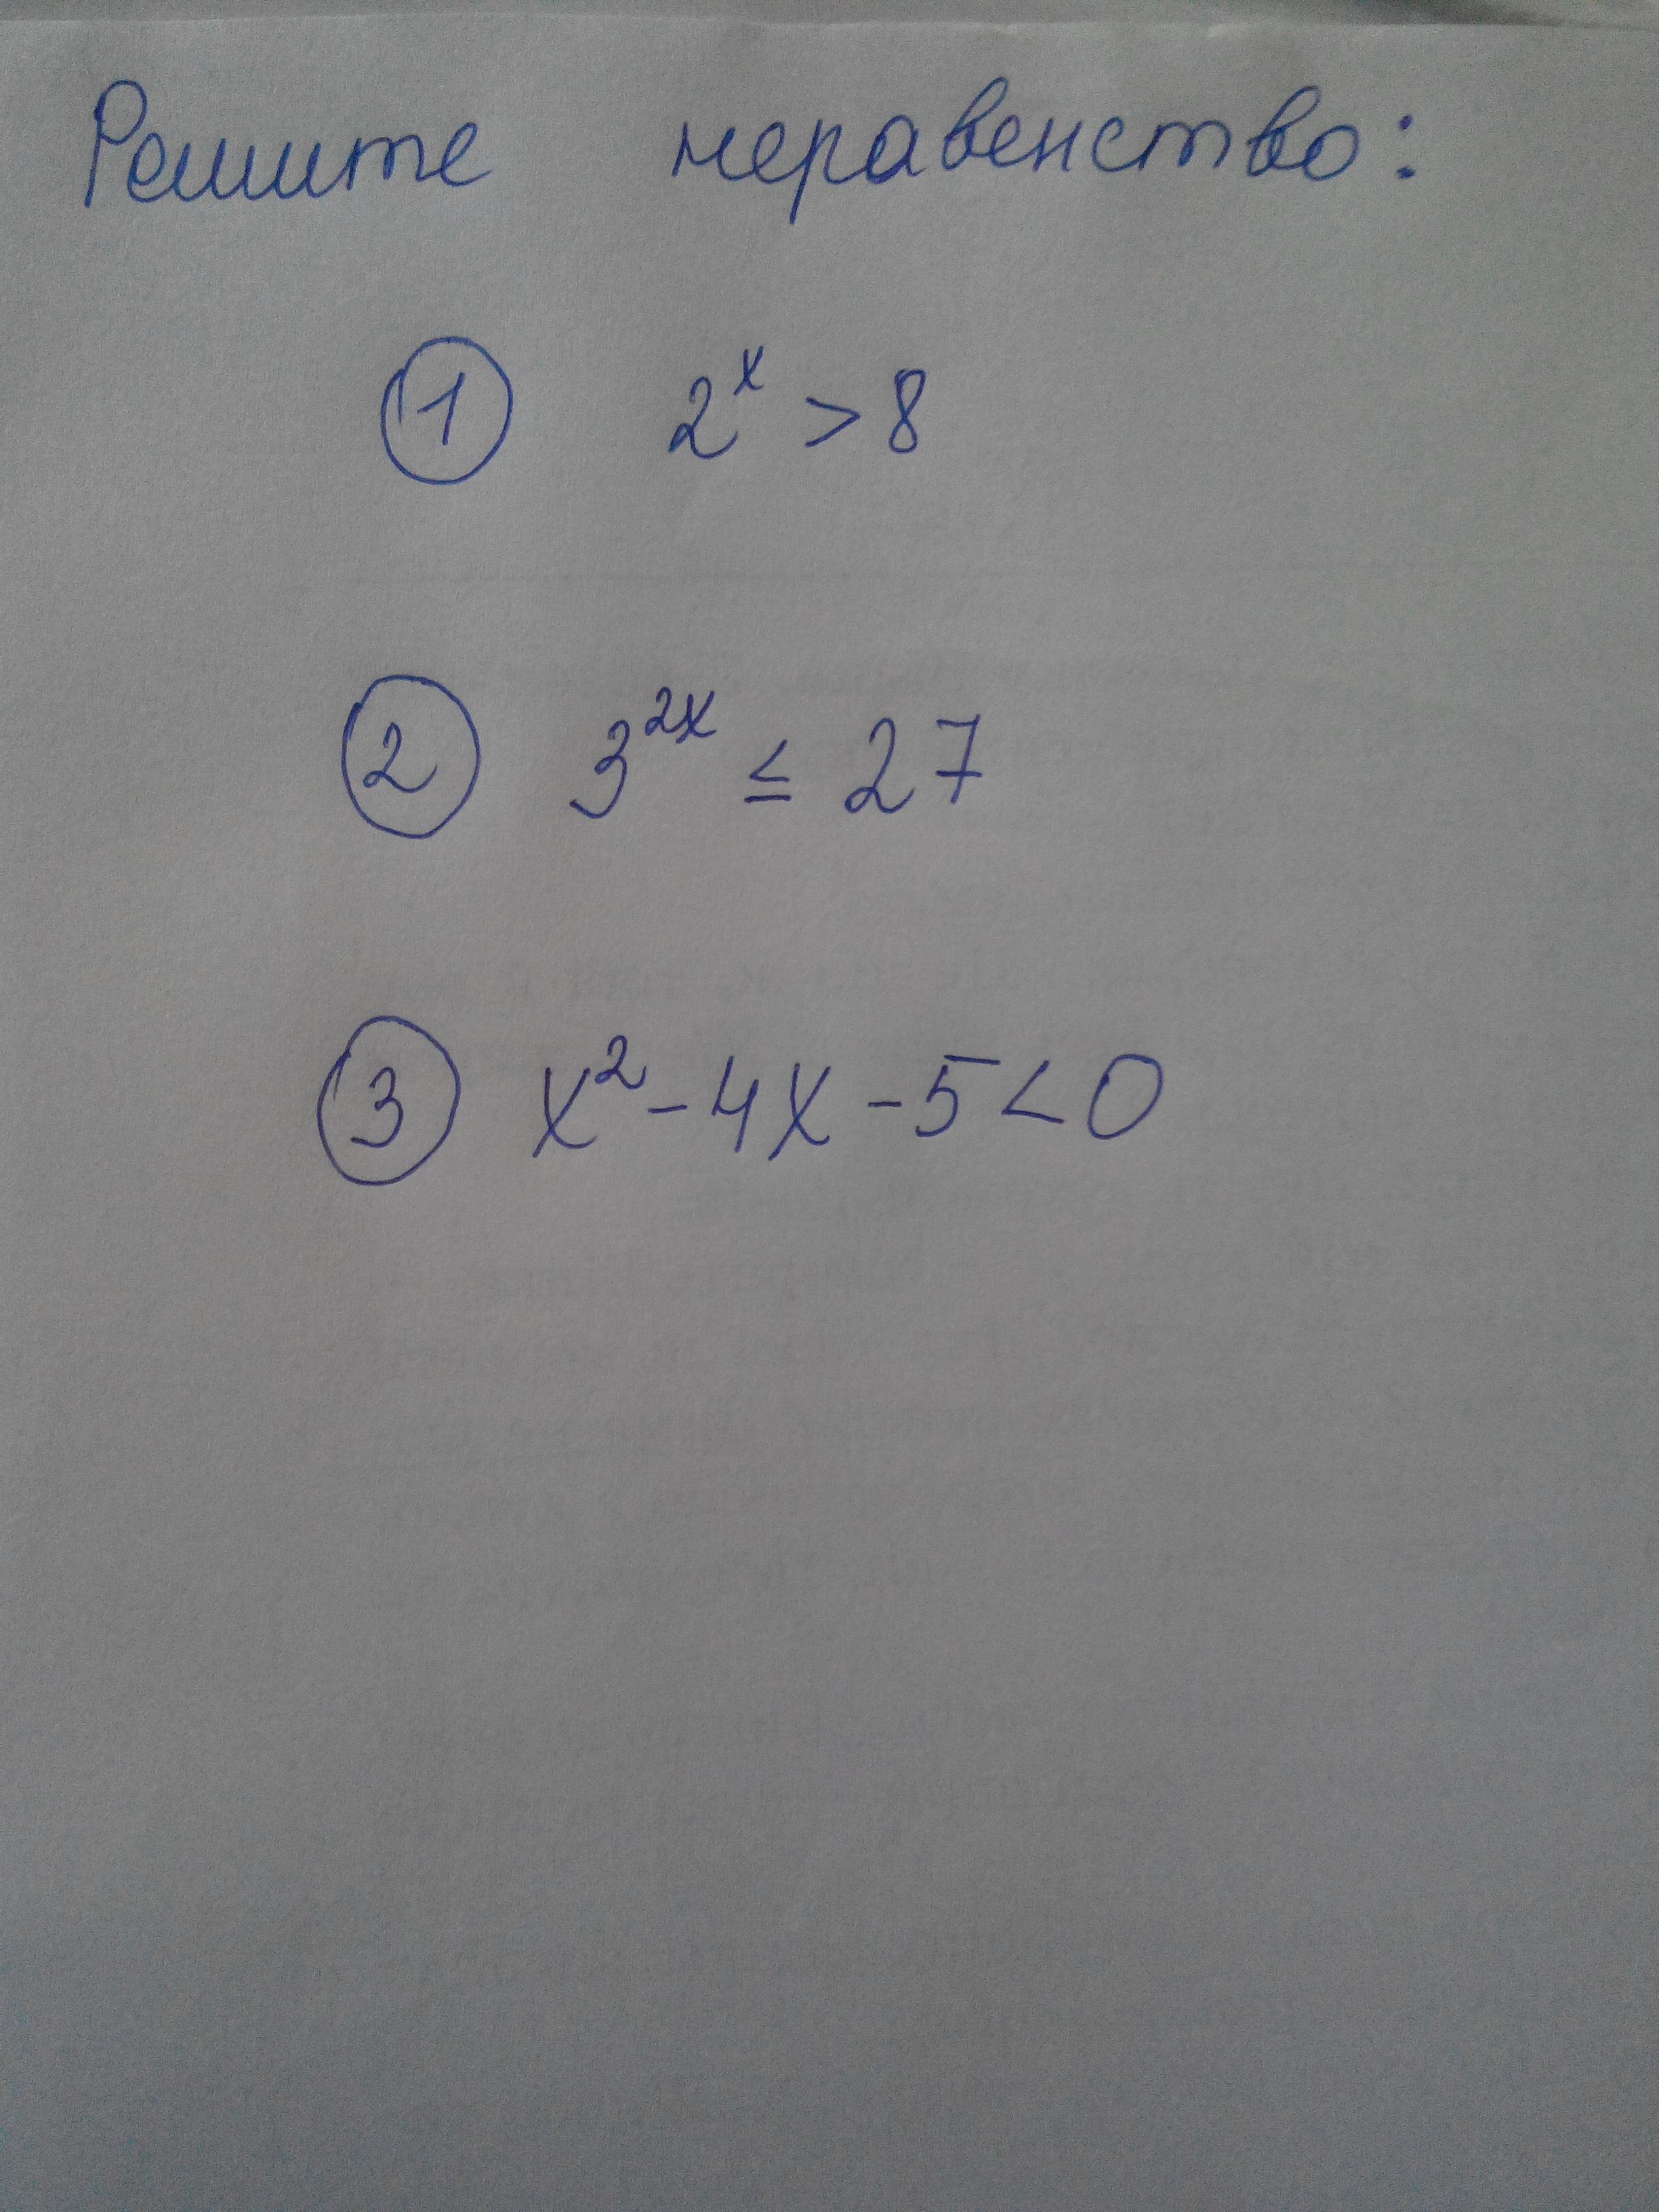 Решите неравенство:
1 2ˣ > 8
2 3²ˣ ≤ 27
3 x² - 4x - 5 < 0